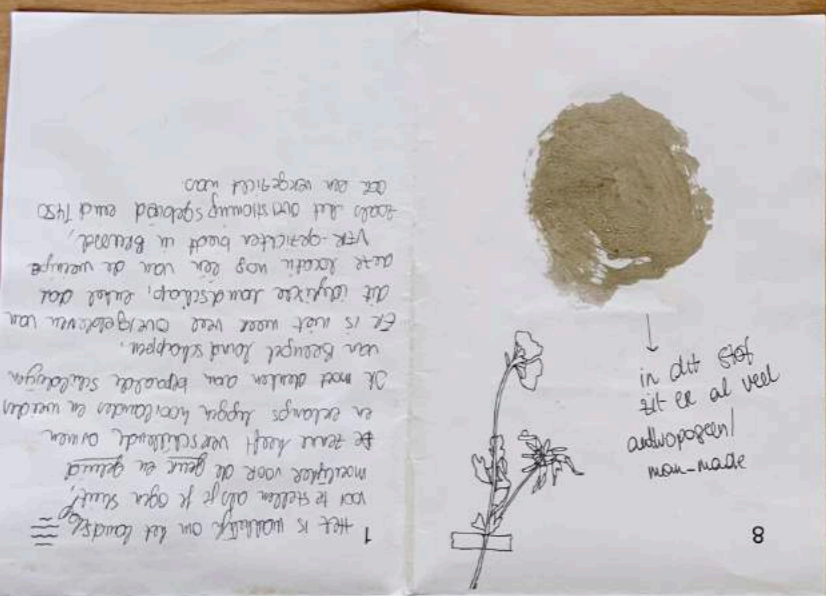 1 Het is makkelijk om het landschap
voor te stellen als je je ogen sluit,
moeilijker voor de geur en geluid
De zenne heeft verschillende armen
en erlangs liggen hooilanden en weiden
Ik moet denken aan bepaalde schilderijen
van Breugel landschappen.
Er is niet meer veel overgebleven van
dit landschap, enkel dat
deze locatie nog één van de weinige
VER-gezichten biedt in Brussel,
zoals het overstromingsgebied eind 1450
ook een vergezicht was.
in dit stof
zit er al veel
anthropogeen/
man-made
8